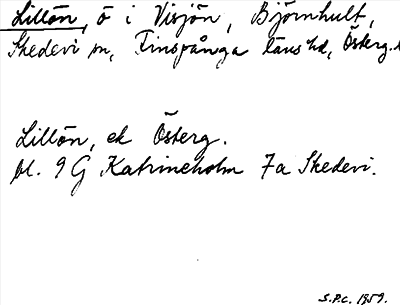 Lillön, ö i Visjön, Björnhult,
Skedevi sn, Finspånga läns hd, Österg.
Lillön, ek Österg.
bl. 9 G Katrineholm 7a Skedevi.
S.P.C. 1959.